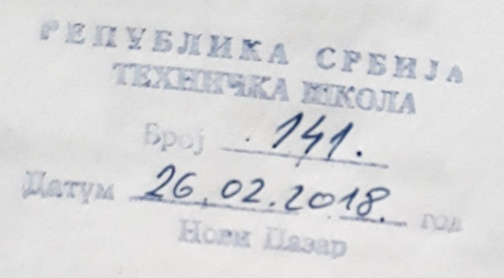 РЕПУБЛИКА СРБИЈА
ТЕХНИЧКА ШКОЛА
Број 141.
Датум 26.02.2018. год
Нови Пазар